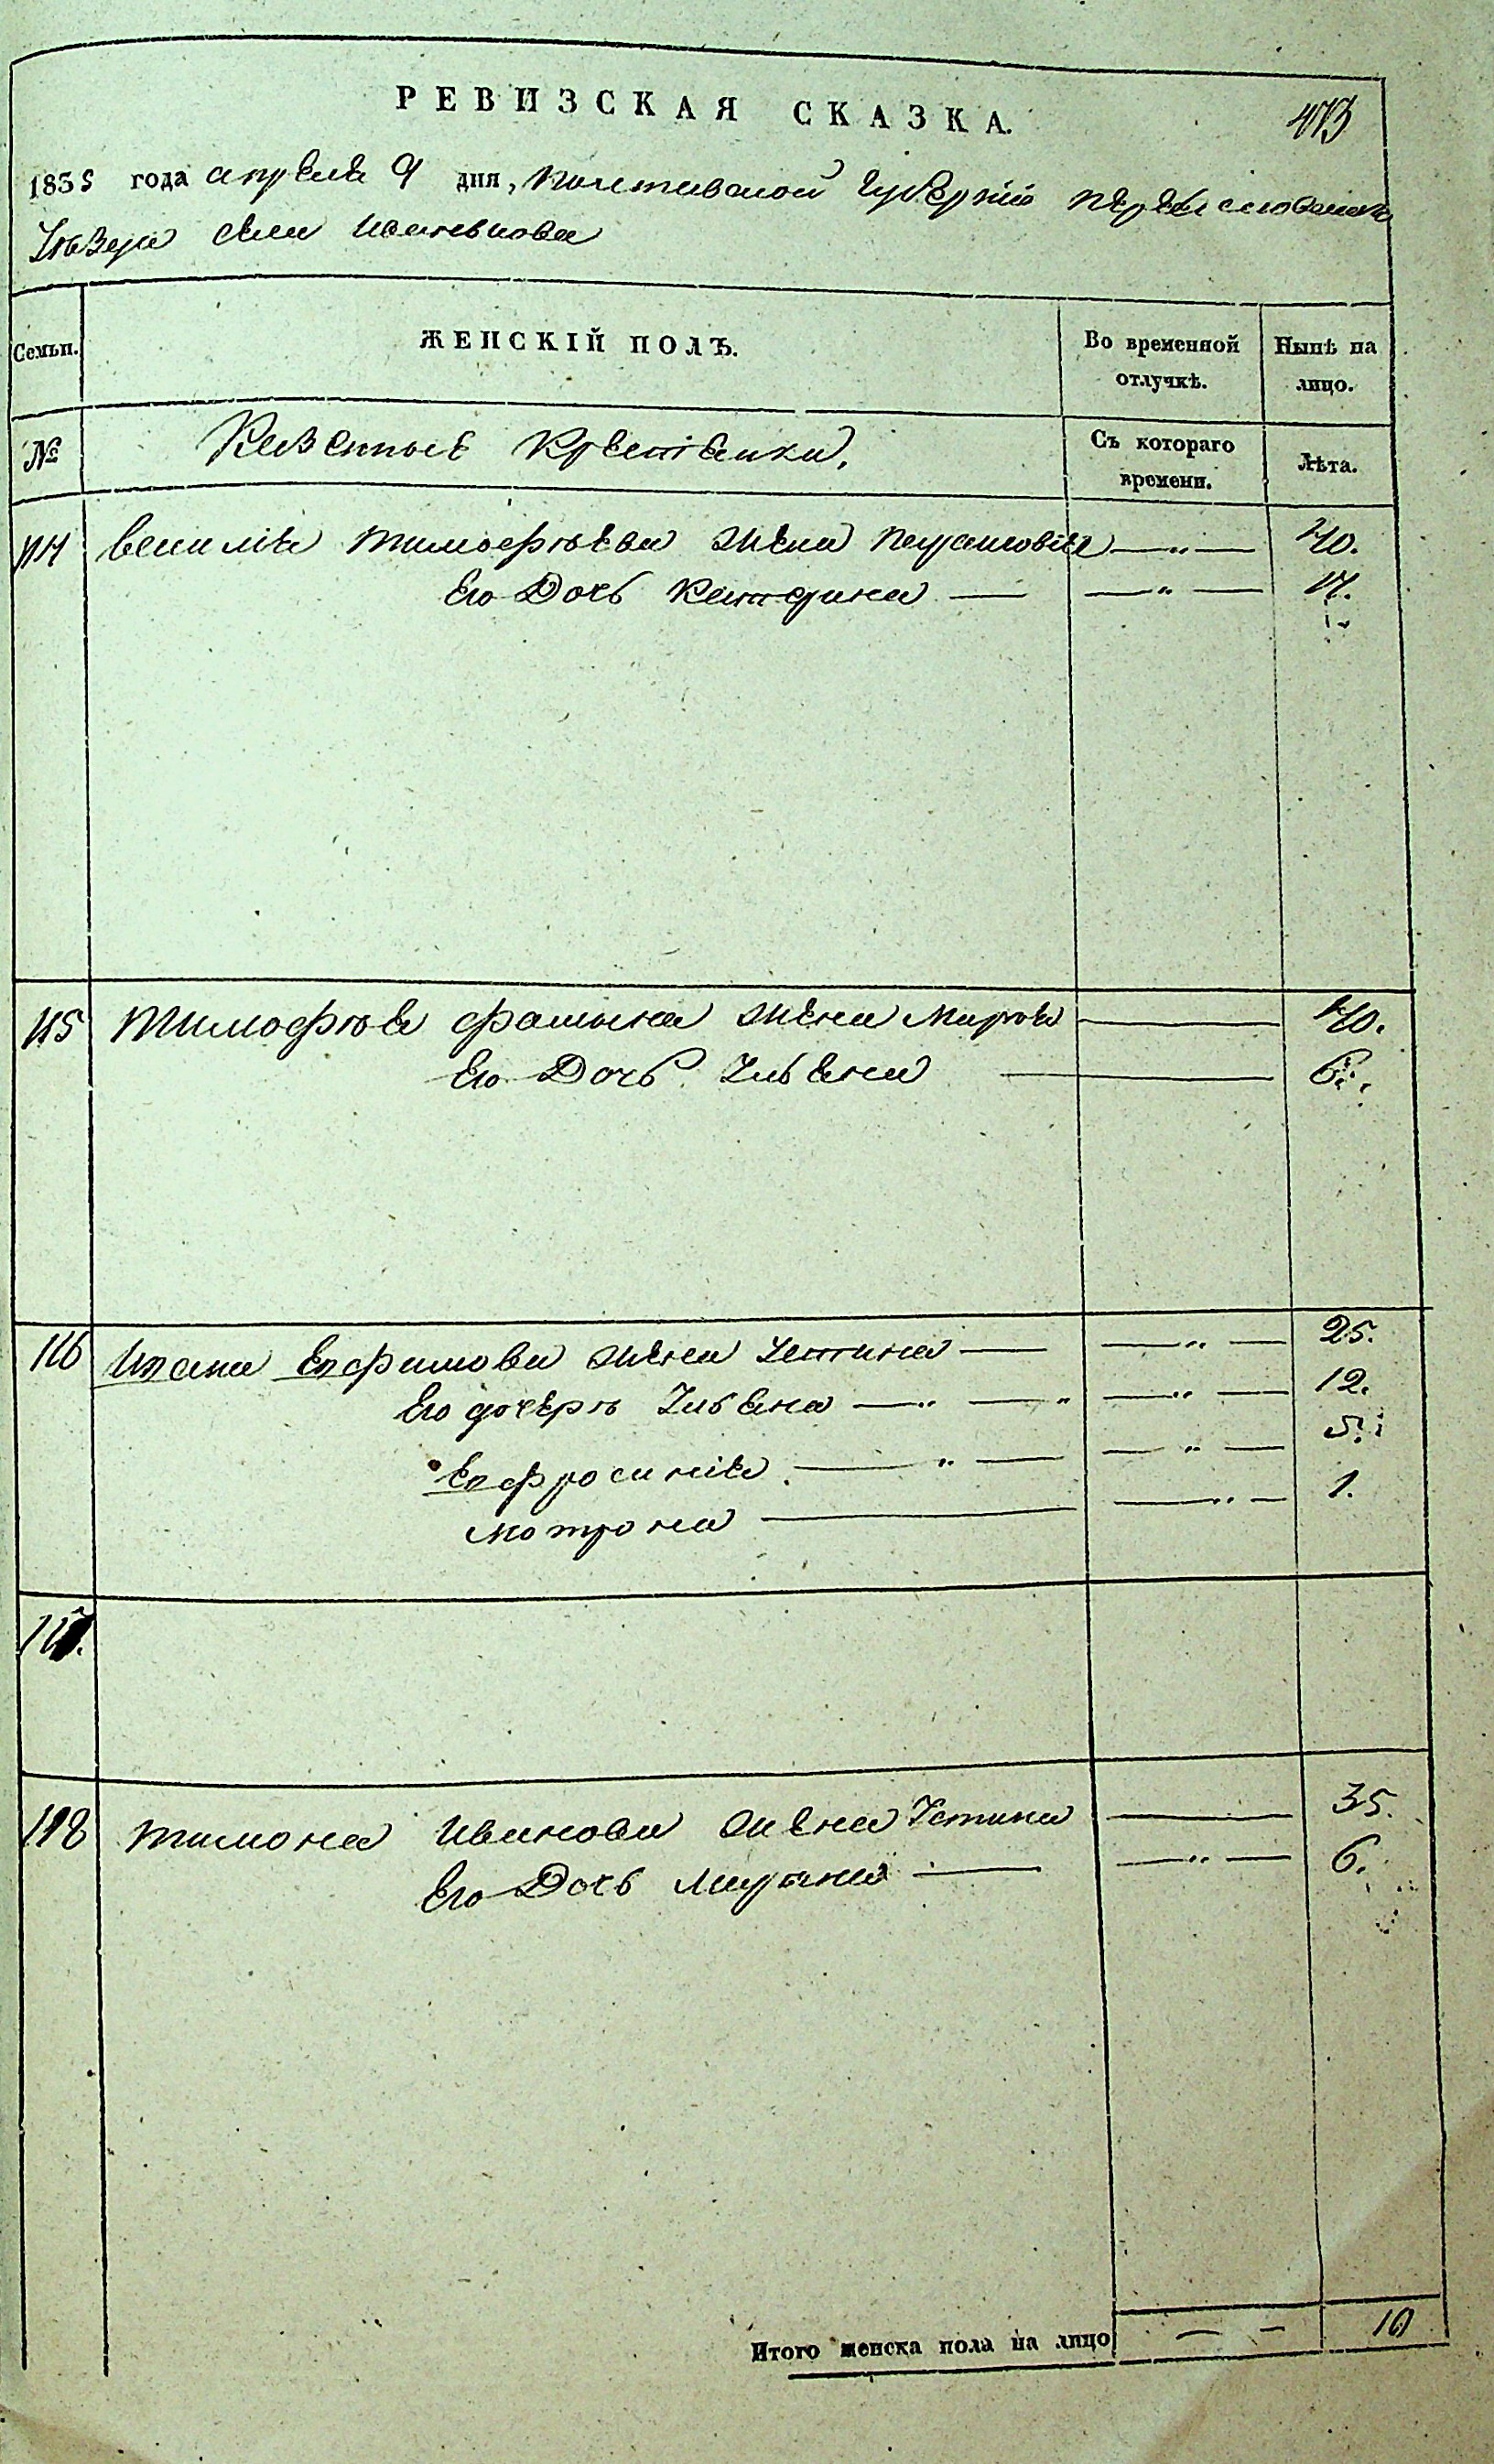 РЕВИЗСКАЯ СКАЗКА.
473
1835 года апреля 9 дня, Полтавской Губернiи Переяславскаго
Уезда села
Семьи. ЖЕНСКІЙ ПОЛЪ. Во временной отлучкѣ. Нынѣ на лицо.
№ Казенные Крестянки. Съ котораго времени. Лѣта.
114 Василія Тимофѣева жена Парасковія —„— 40.
Его Дочь Катерина — —„— 17.
115 Тимофѣя жена Марья — 40.
Его Дочь Ульяна — 6.
116 Ивана Ефимова жена Устина — —„— 25.
Его дочерѣ Ульяна —„ —„ —„— 12.
Ефросинія —„— —„— 5.
Мотрона — —„— 1.
117.
118 Тимона Иванова жена Устина — 35.
Его Дочь Марина — —„— 6.
Итого женска пола на лицо — — 10